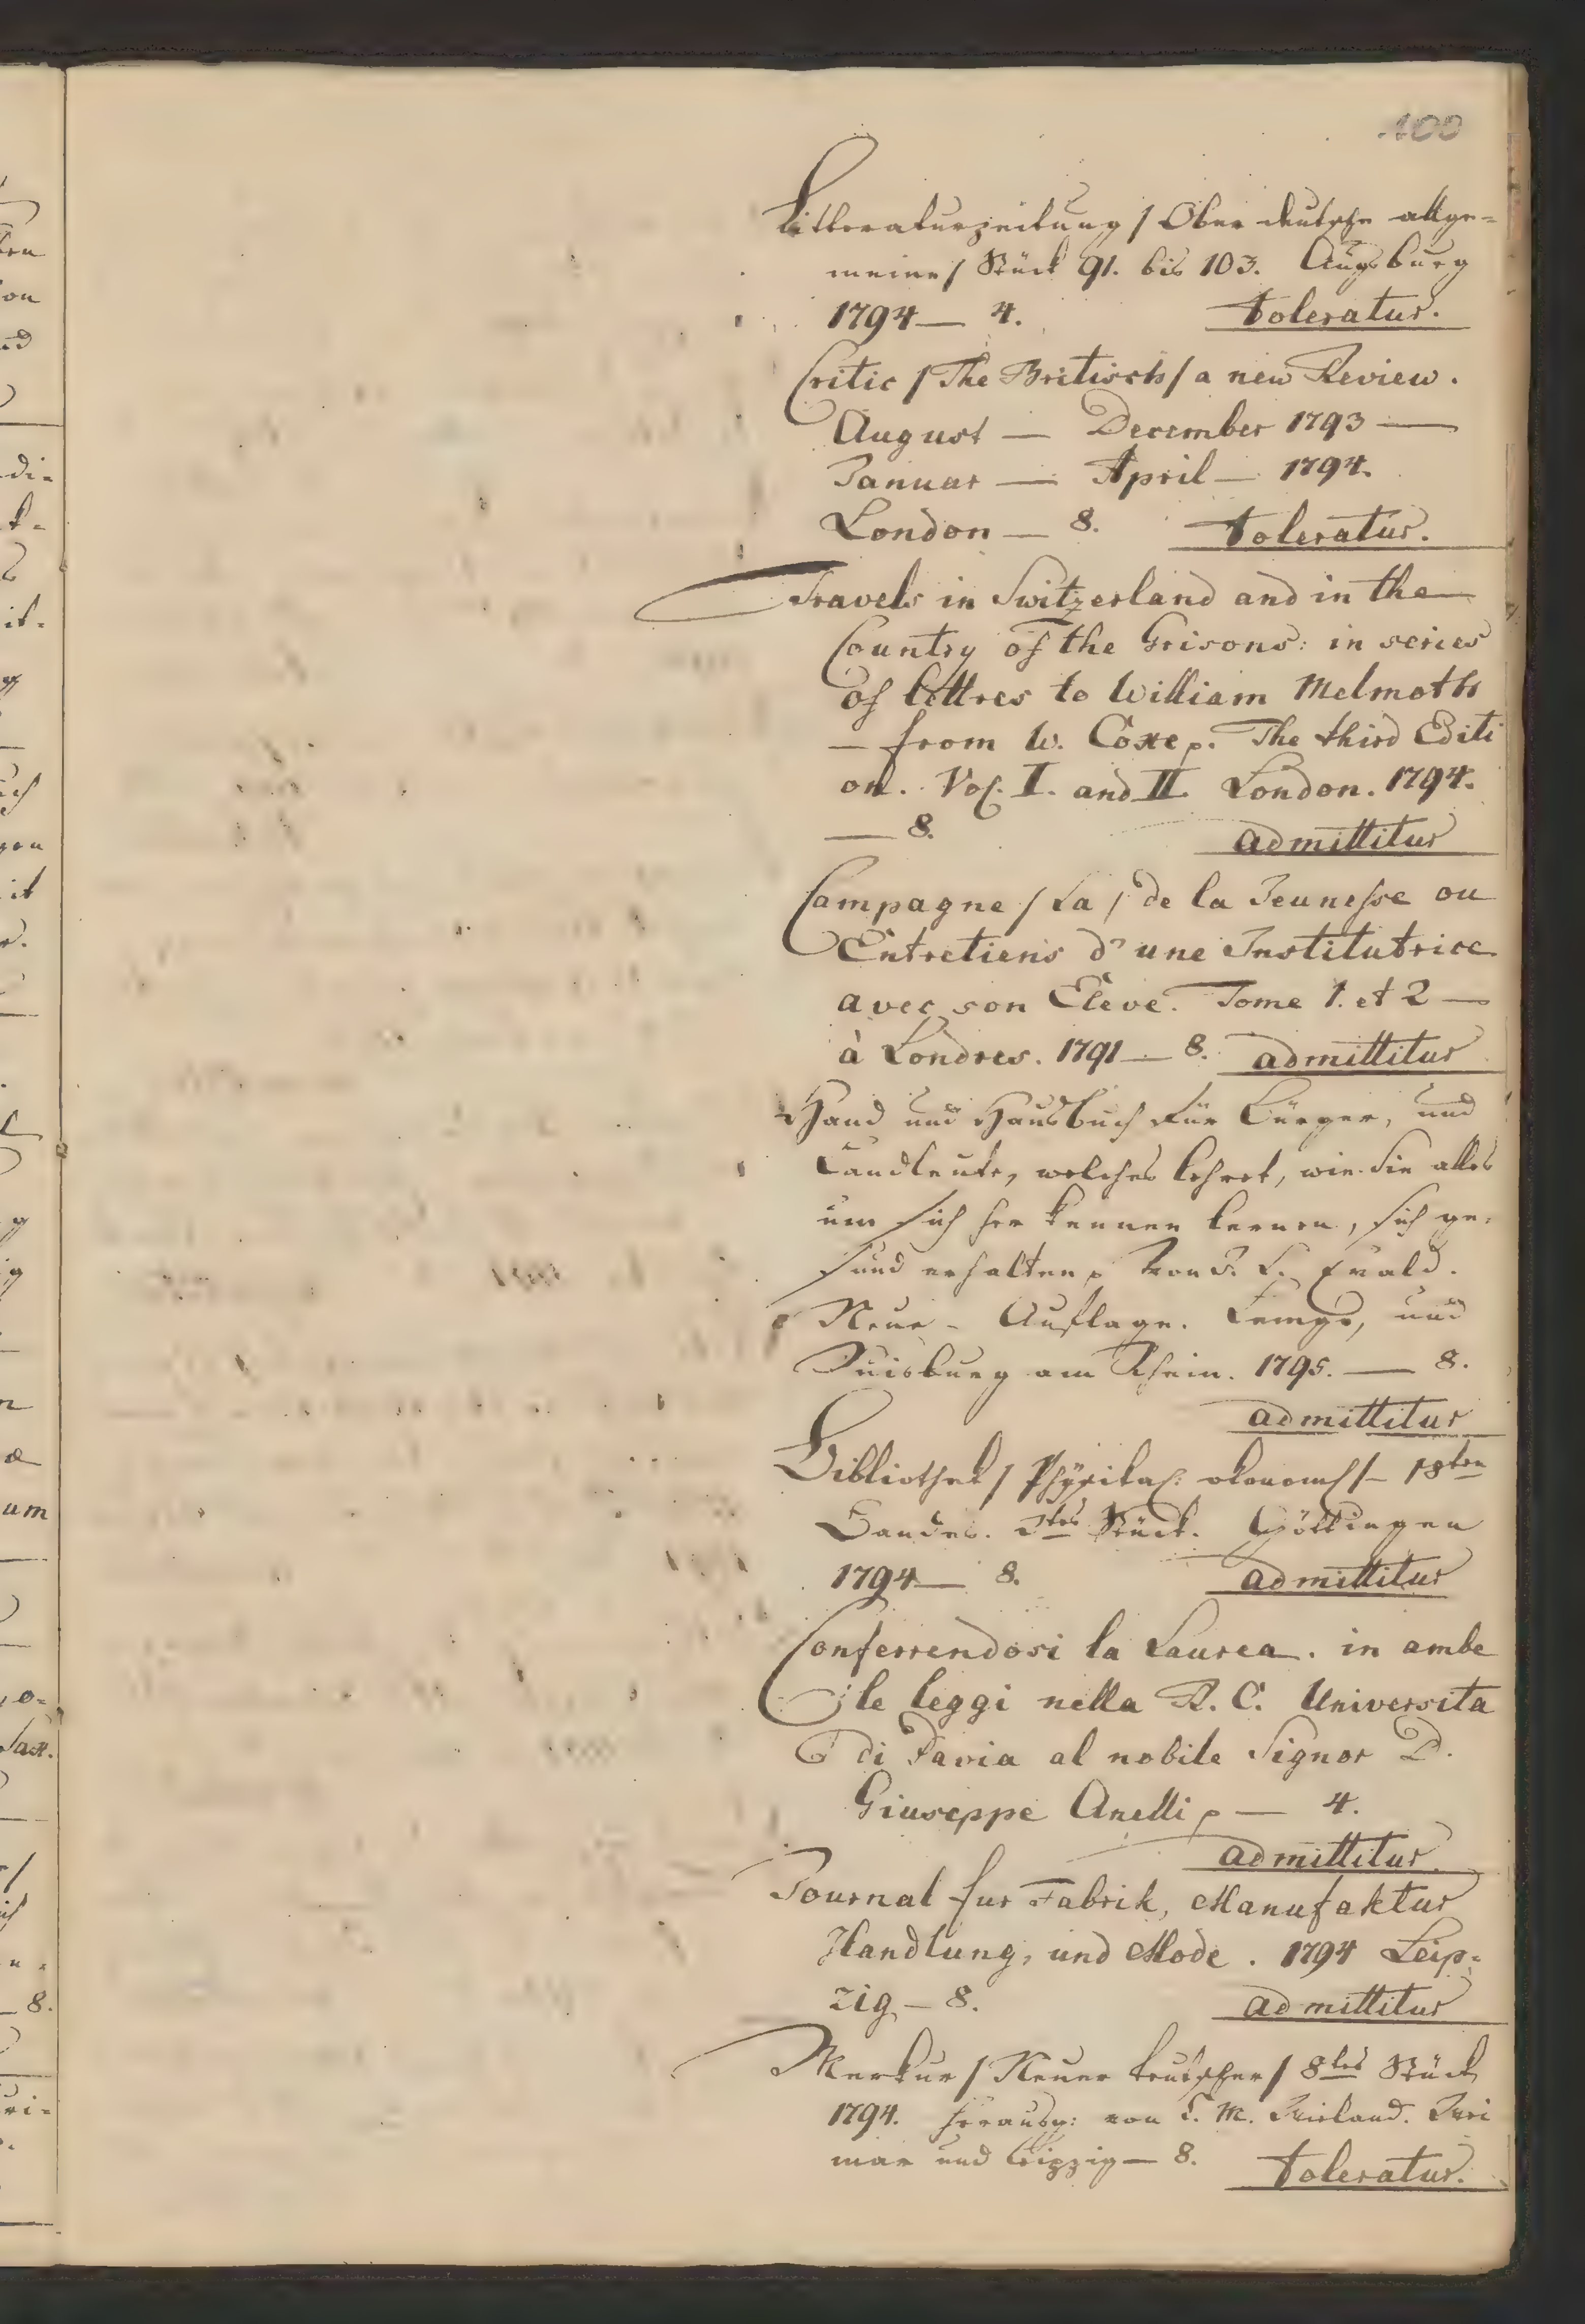 100
Litteraturzeitung / Oberdeutsche allge=
meine / Stück 91. bis 103. Augsburg
1794 — 4. toleratur.
Critic / The Britisch / a new Review.
August — December 1793 —
Januar — April — 1794.
London — 8. toleratur.
Travels in Switzerland and in the
Country of the Grisons: in series
of lettres to William Melmoth
— from W. Coxe p. The third Editi
on. Vol. I. and II. London. 1794.
— 8. admittitur
Campagne / La / de la Jeunesse ou
Entretiens d'une Institutrice
avec son Eleve. Tome 1. et 2 —
à Londres. 1791 — 8. admittitur
Hand und Hausbuch für Bürger, und
Landleute, welches lehret, wie Sie alles
um sich her kennen lernen, sich ge=
sund erhalten p von J. L. Ewald.
Neue — Auflage. Lemgo, und
Duisburg am Rhein. 1795. — 8.
admittitur
Bibliothek / Physikal: okonomis / — 18ten
Bandes. 3tes Stück. Göttingen
1794 — 8. admittitur
Conferrendosi la Laurea. in ambe
le leggi nella R. C. Universita
di Pavia al nobile Signor D.
Giuseppe Anelli p — 4.
admittitur.
Journal fur Fabrik, Manufaktur
Handlung, und Mode. 1794 Leip=
zig — 8. admittitur
Merkur / Neuer teutscher / 8tes Stück
1794. herausg: von C. M. Wieland. Wei
mar und Leipzig — 8. toleratur.